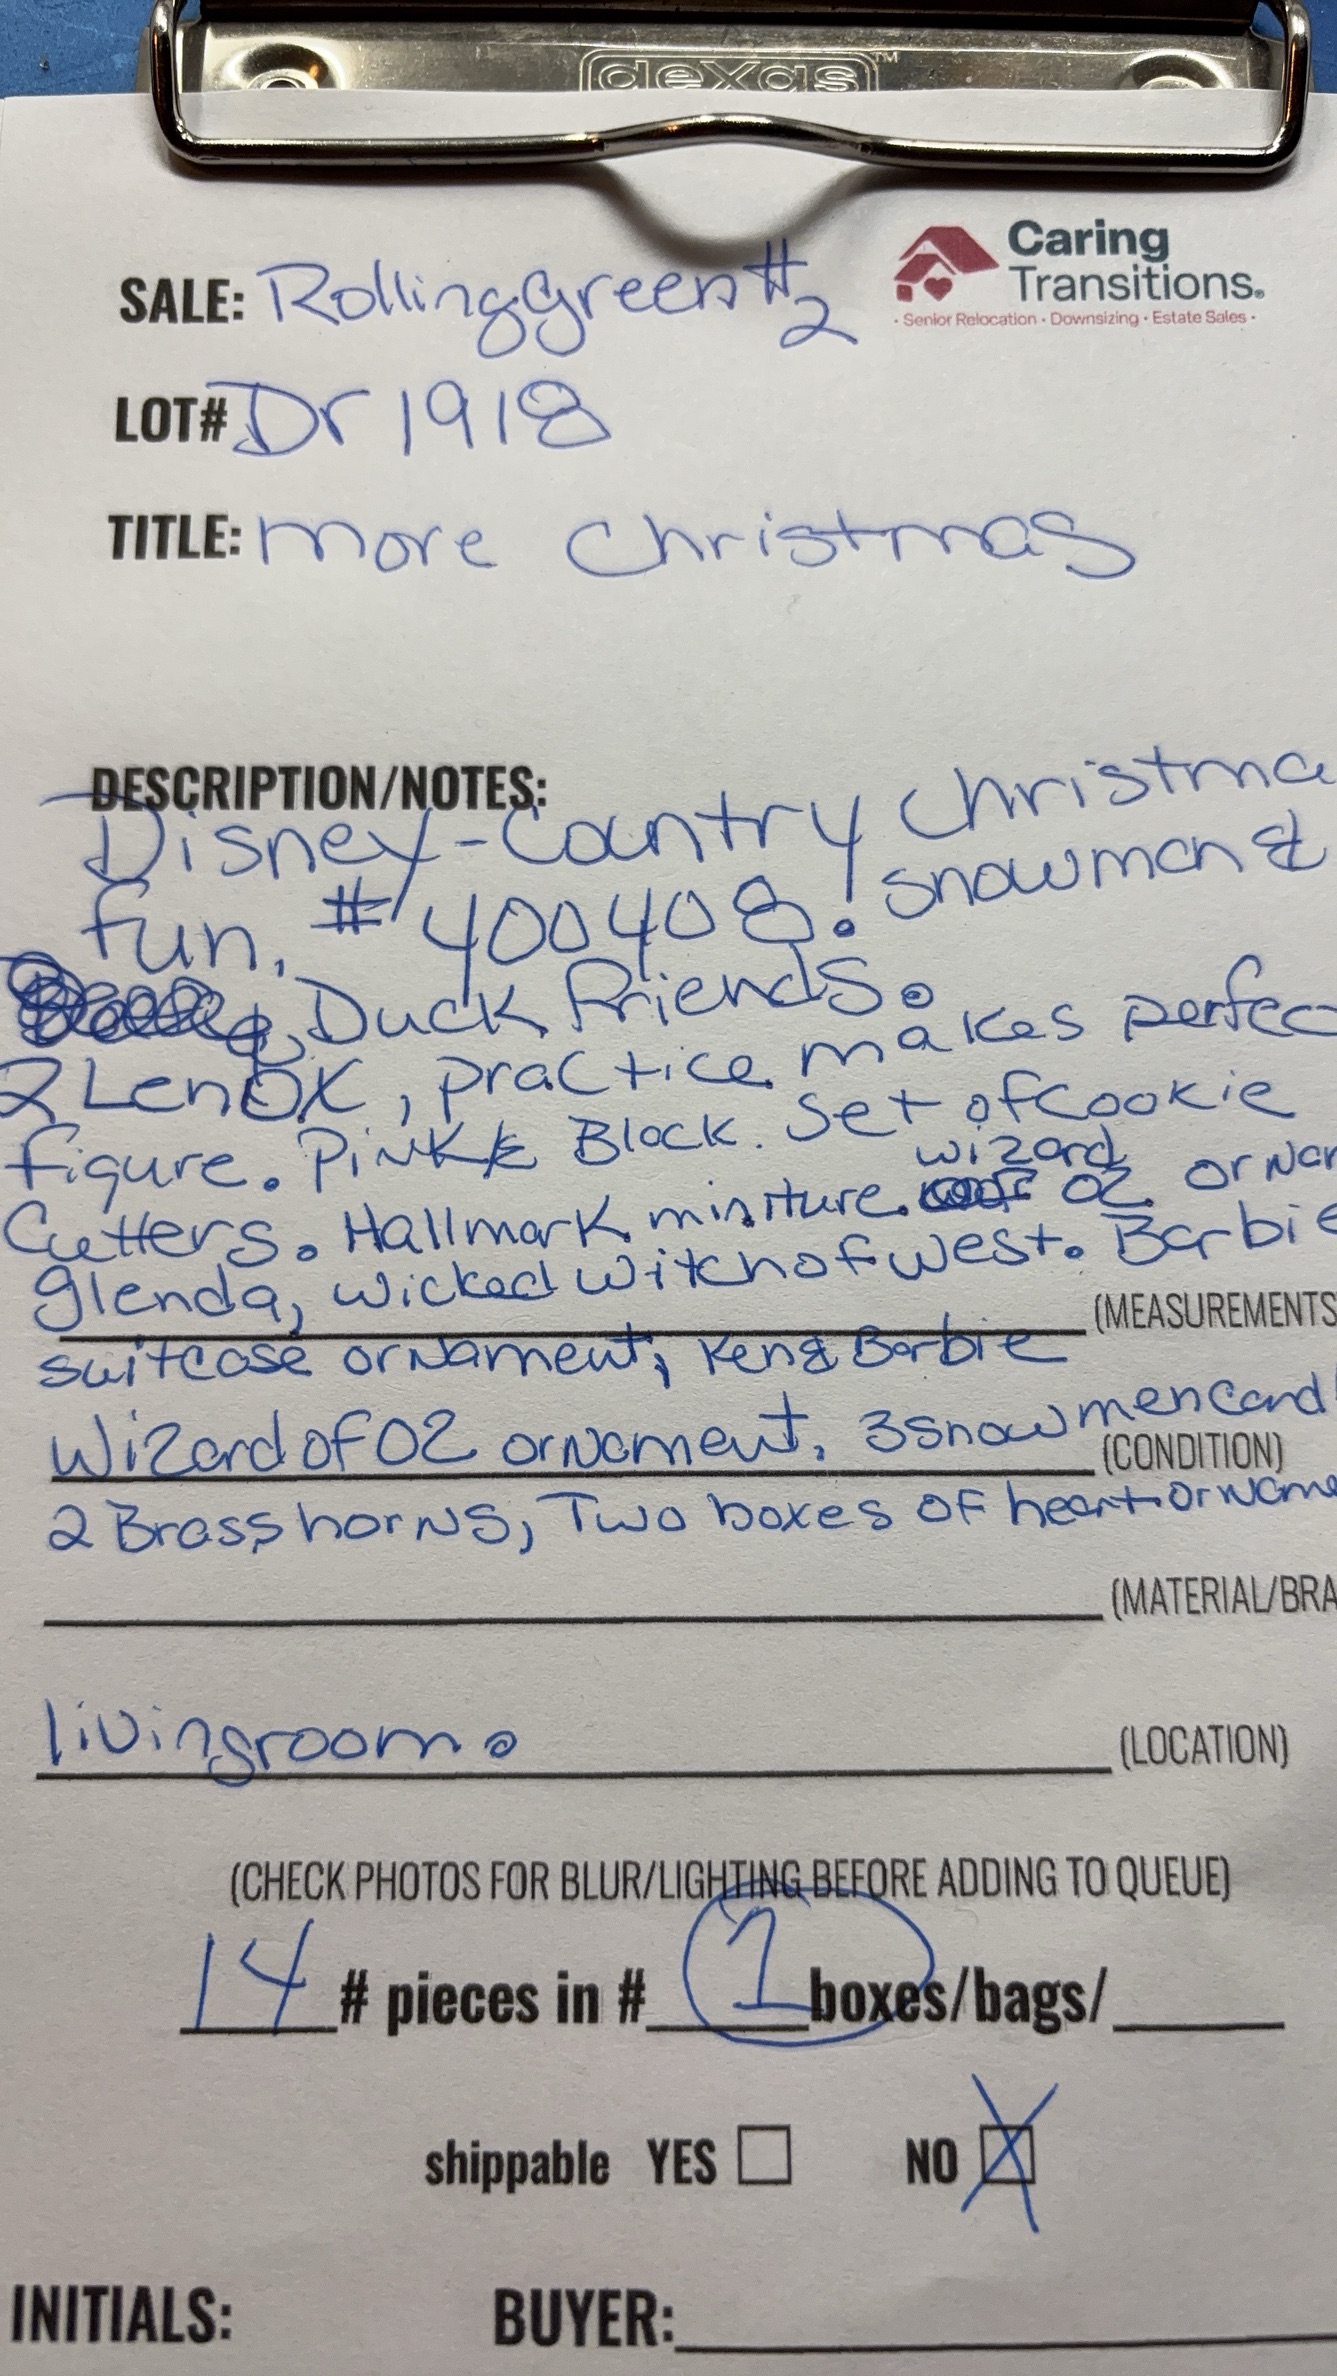 dexas™
Caring
Transitions®
· Senior Relocation · Downsizing · Estate Sales ·
SALE: Rollinggreen #2
LOT# Dr 1918
TITLE: more Christmas
DESCRIPTION/NOTES:
Disney-Country Christma
fun. #400408. snowmen &
Duck Friends.
2 Lenox, practice makes perfec
figure. Pink & Black. Set of Cookie
Cutters. Hallmark miniture. wizard oz ornar
glenda, wicked witch of west. Barbie
(MEASUREMENTS
suitcase ornament, Ken & Barbie
Wizard of Oz ornament, 3 snowmen cand
(CONDITION)
2 Brass horns, Two boxes of heart orname
(MATERIAL/BRA
livingroom. (LOCATION)
(CHECK PHOTOS FOR BLUR/LIGHTING BEFORE ADDING TO QUEUE)
14 # pieces in # 1 boxes/bags/
shippable YES NO X
INITIALS: BUYER: